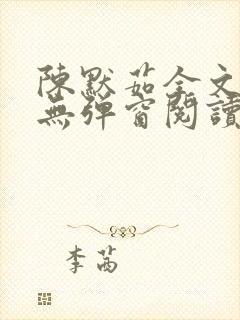 陳默茹全文
無彈窗閱讀
李茜